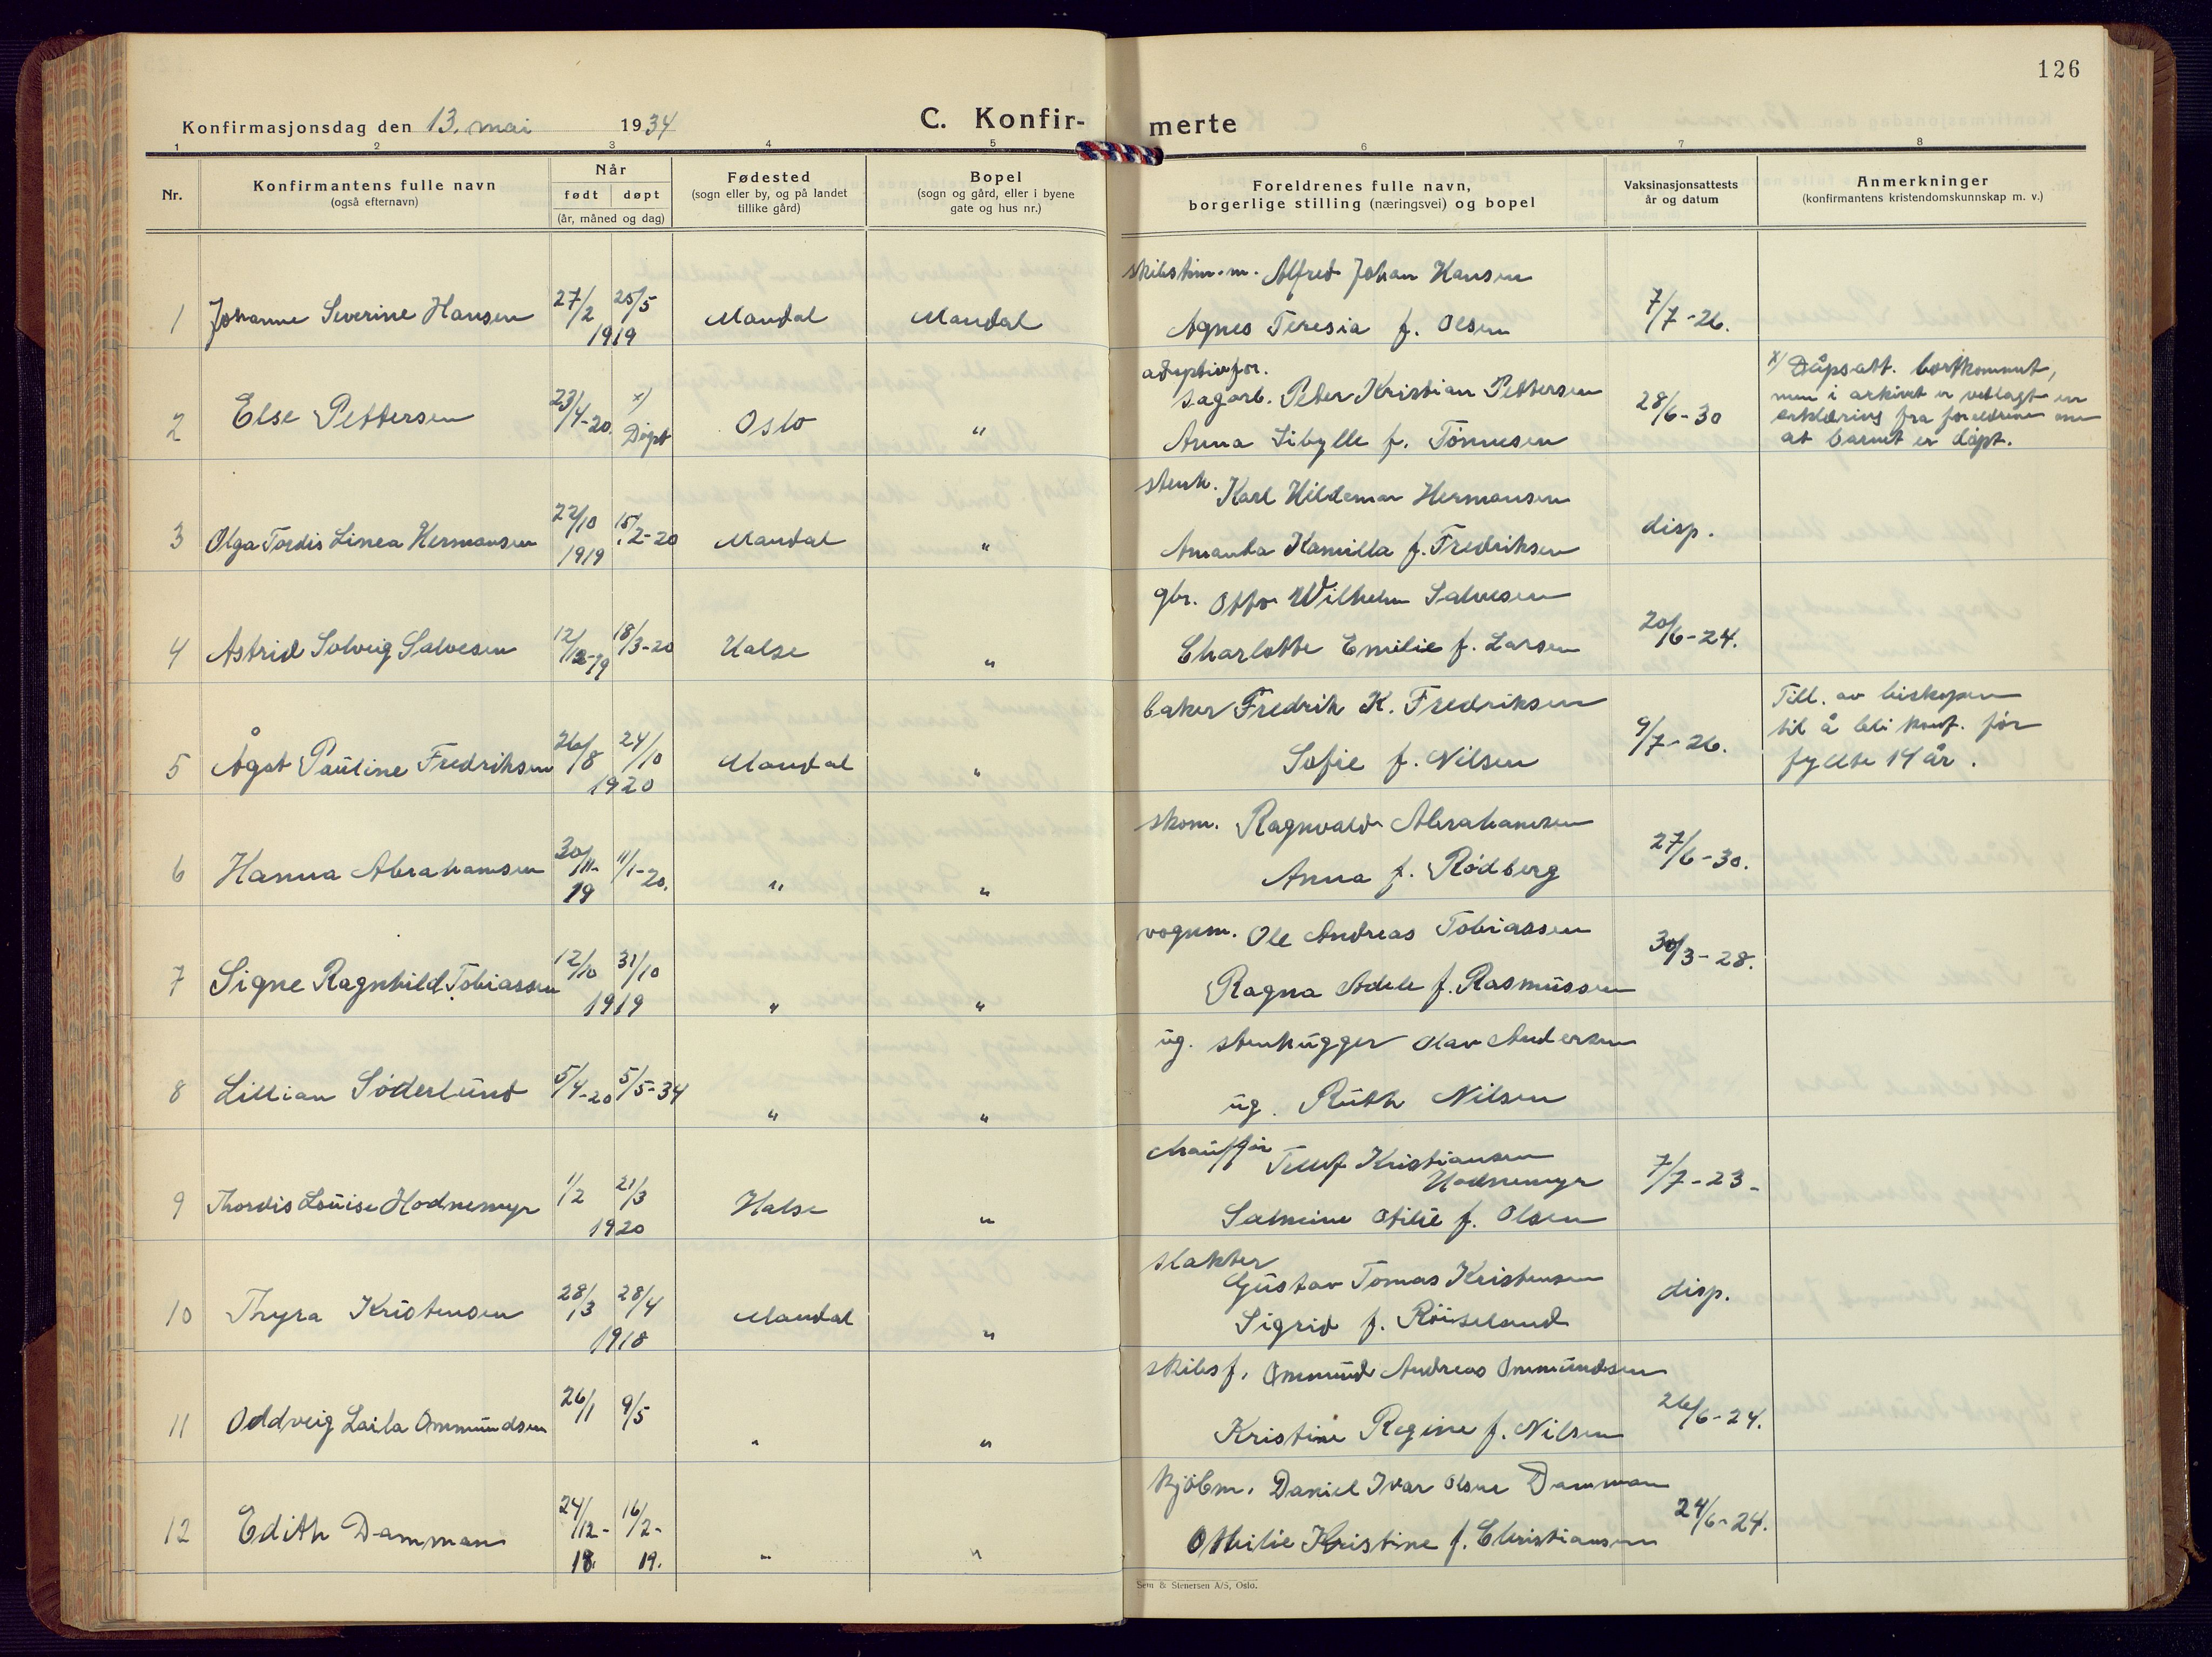 126
Konfirmasjonsdag den 13. mai 1934
C. Konfir-
merte
1 2 3 4 5 6 7 8
Nr.
Konfirmantens fulle navn
(også efternavn)
Når
født døpt
(år, måned og dag)
Fødested
(sogn eller by, og på landet
tillike gård)
Bopel
(sogn og gård, eller i byene
gate og hus nr.)
Foreldrenes fulle navn,
borgerlige stilling (næringsvei) og bopel
Vaksinasjonsattests
år og datum
Anmerkninger
(konfirmantens kristendomskunnskap m. v.)
skibstøm.m. Alfred Johan Hansen
1 Johanne Severine Hansen 27/2 25/5 Mandal Mandal Agnes Teresia f. Olsen 7/7-26.
1919
adoptivfor.
sagarb. Peter Kristian Pettersen
2 Else Pettersen 23/4-20. x) Døpt Oslo " Anna Sibylle f. Tönnesen 28/6-30
x) Dåpsatt. bortkommet,
men i arkivet er vedlagt en
erklæring fra foreldrene om
at barnet er døpt.
stenh. Karl Hildemar Hermansen
3 Olga Tordis Linea Hermansen 22/10 15/2-20 Mandal " Amanda Kamilla f. Fredriksen disp.
1919
gbr. Otto Wilhelm Salvesen
4 Astrid Solveig Salvesen 12/12-19 18/3-20 Halse " Charlotte Emilie f. Larsen 20/6-24.
baker Fredrik K. Fredriksen
5 Ågot Pauline Fredriksen 26/8 24/10 Mandal " Sofie f. Nilsen 9/7-26.
1920
Till. av biskopen
til å bli konf. før
fyllte 14 år.
skom. Ragnvald Abrahamsen
6 Hanna Abrahamsen 30/11- 11/1-20. " " Anna f. Rødberg 27/6-30.
19
vognm. Ole Andreas Tobiassen
7 Signe Ragnhild Tobiassen 12/10 31/10 " " Ragna Adele f. Rasmussen 30/3-28.
1919
ug. stenhugger Olav Andersen
8 Lillian Söderlund 5/4-20 5/5-34 " " ug. Ruth Nilsen
chauffør Tellef Kristiansen
Hodnemyr
9 Thordis Louise Hodnemyr 1/2 21/3 Halse " Salmine Otilie f. Olsen 7/7-23-
1920
slakter
Gustav Tomas Kristensen
10 Thyra Kristensen 28/3 28/4 Mandal " Sigrid f. Röiseland disp.
1918
skibsf. Ommund Andreas Ommundsen
11 Oddveig Laila Ommundsen 26/1 9/5 " " Kristine Regine f. Nilsen 26/6-24.
kjøbm. Daniel Ivar Olsen Damman
12 Edith Damman 24/12- 16/2- " " Othilie Kristine f. Christiansen 24/6-24.
18. 19.
Sem & Stenersen A/S, Oslo.